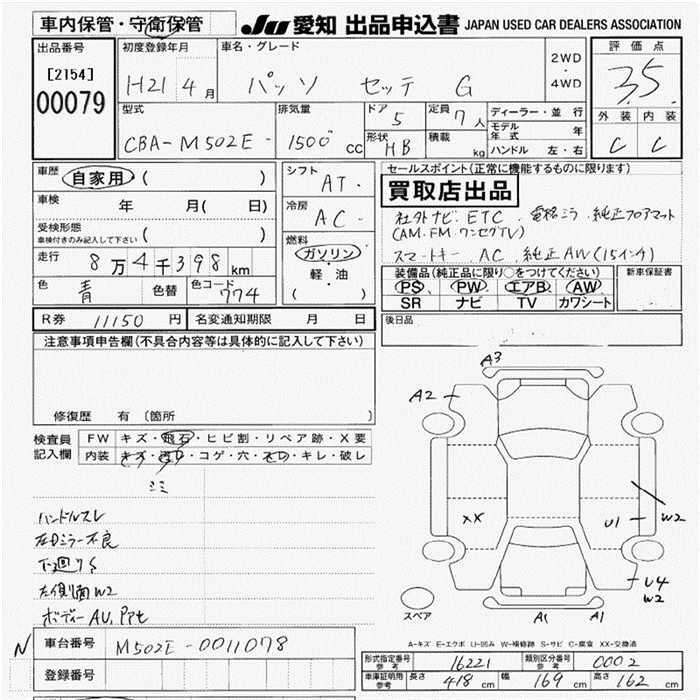 車内保管・守衛保管 JU 愛知 出品申込書 JAPAN USED CAR DEALERS ASSOCIATION
出品番号 初度登録年月 車名・グレード 2WD・4WD 評価点
[2154] H21 4月 パッソ セッテ G 3.5
00079
型式 排気量 ドア 5 定員 7人 ディーラー・並行 外装 内装
CBA-M502E- 1500cc 形状 HB 積載 kg モデル年式 年 C C
ハンドル 左・右
車歴 自家用 ( ) シフト AT. セールスポイント(正常に機能するものに限ります)
買取店出品
車検 年 月( 日) 冷房 AC- 社外ナビ. ETC. 電格ミラ. 純正フロアマット
受検形態 ( ) (AM.FM.ワンセグTV)
車検付きのみ記入して下さい
燃料 スマートキー. AC. 純正AW(15インチ)
走行 8万4千398km ガソリン 装備品(純正品に限り○をつけてください) 新車保証書
軽・油 PS PW エアB AW
色 青 色替 色コード 774 ( ) SR ナビ TV カワシート
R券 11150円 名変通知期限 月 日 後日品
注意事項申告欄(不具合内容等は具体的に記入して下さい)
A3
A2
修復歴 有 〔箇所 〕
検査員記入欄 FW キズ・飛石・ヒビ割・リペア跡・X要
内装 キズ・汚れ・コゲ・穴・スレ・キレ・破レ
ミミ
ハンドルスレ XX U1 W2
右Dミラー不良
下廻りS
左側面W2 U4
W2
ボディーAU,
スペア A1 A1
N 車台番号 M502E-0011078
A-キズ E-エクボ U-凹み W-補修跡 S-サビ C-腐食 XX-交換済
登録番号 形式指定番号 参考 16221 類別区分番号 参考 0002
車庫証明用 参考 長さ 418cm 幅 169cm 高さ 162cm